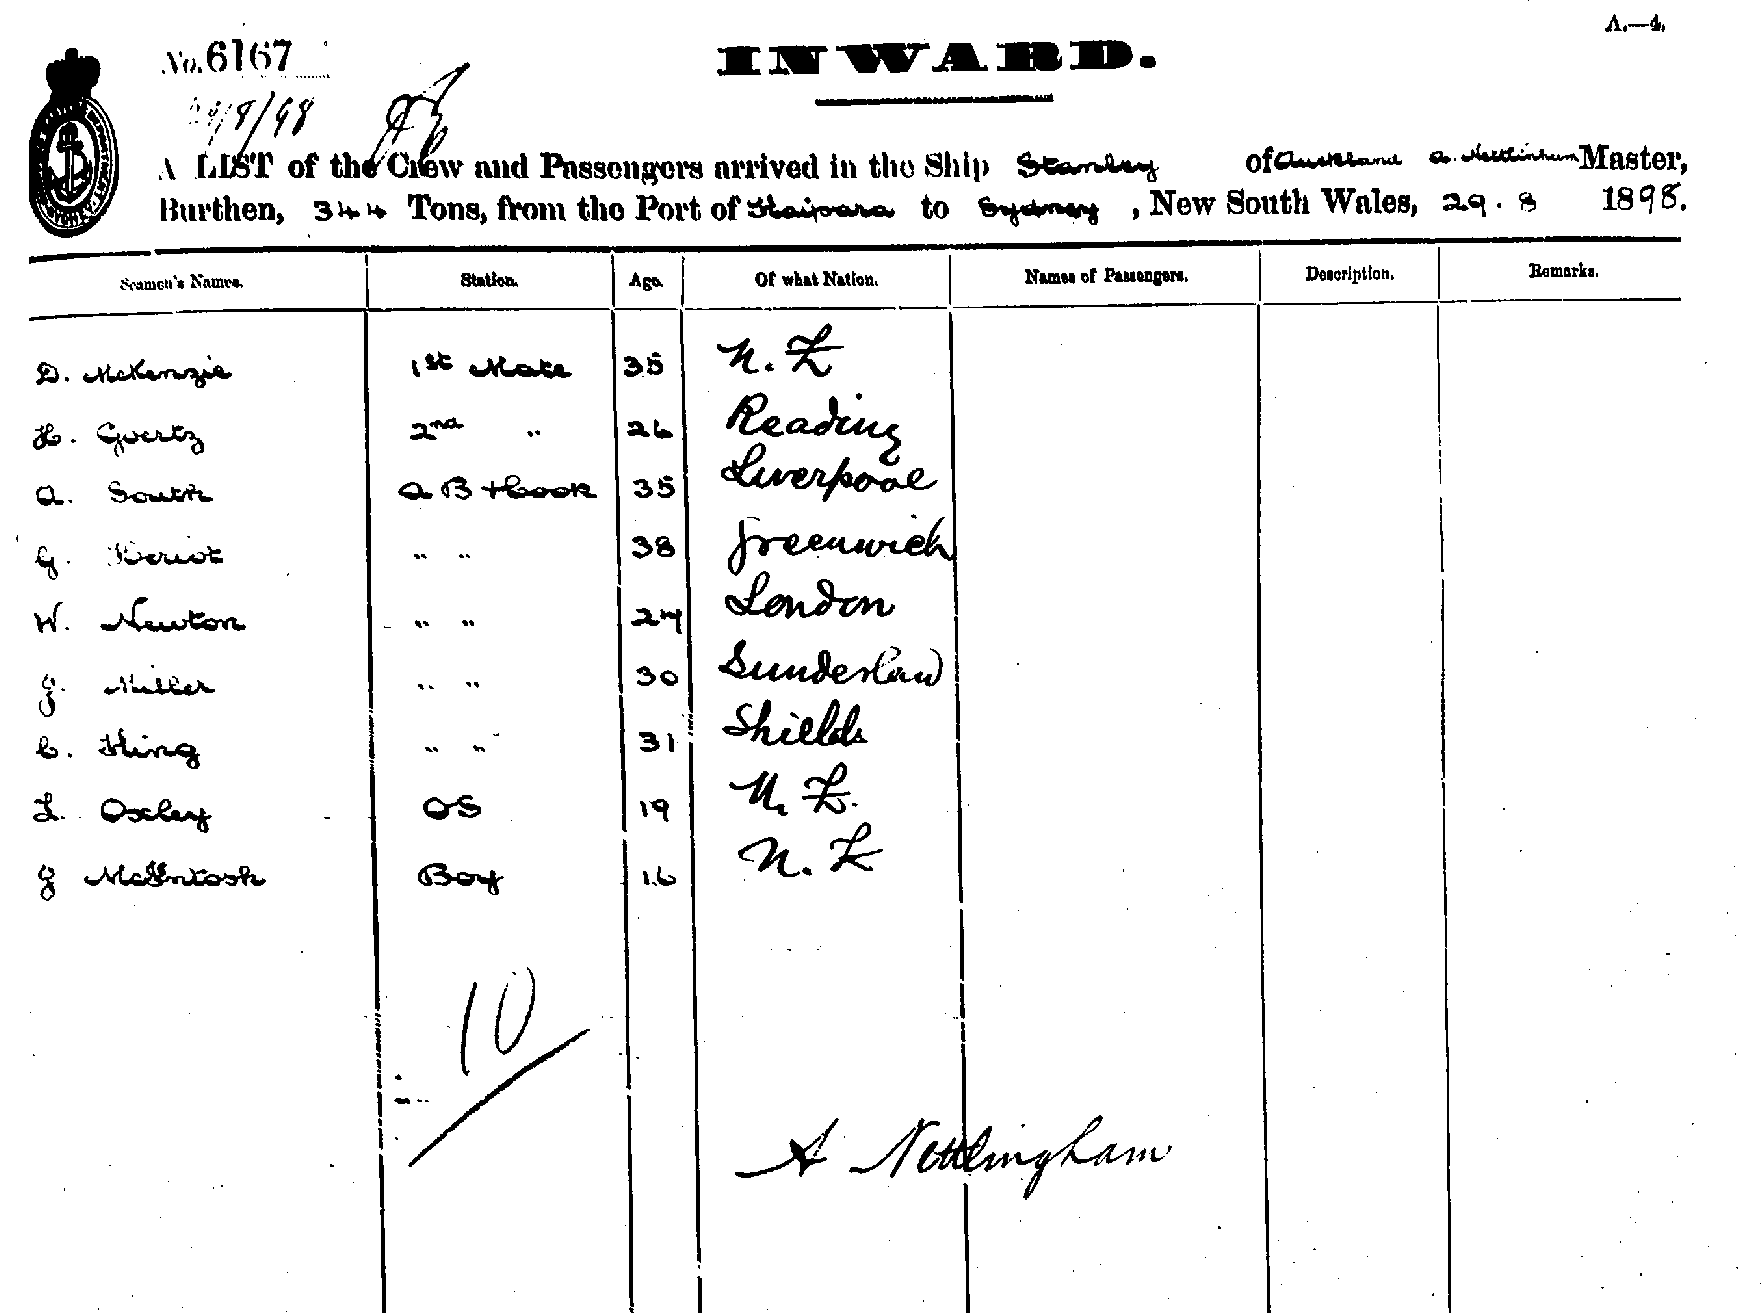 A.—4.
No. 6167
INWARD.
29/8/98
A LIST of the Crew and Passengers arrived in the Ship Stanley of Auckland A. Nettlinham Master,
Burthen, 344 Tons, from the Port of Kaipara to Sydney, New South Wales, 29.8 1898.
Seamen's Names. Station. Age. Of what Nation. Names of Passengers. Description. Remarks.
D. McKenzie 1st Mate 35 N.Z
H. Goertz 2nd " 26 Reading
A. South AB & Cook 35 Liverpool
G. Heriot " " 38 Greenwich
W. Newton " " 24 London
J. Miller " " 30 Sunderland
C. King " " 31 Shields
L. Oxley OS 19 N.Z.
J McIntosh Boy 16 N.Z
10
A Nettlingham